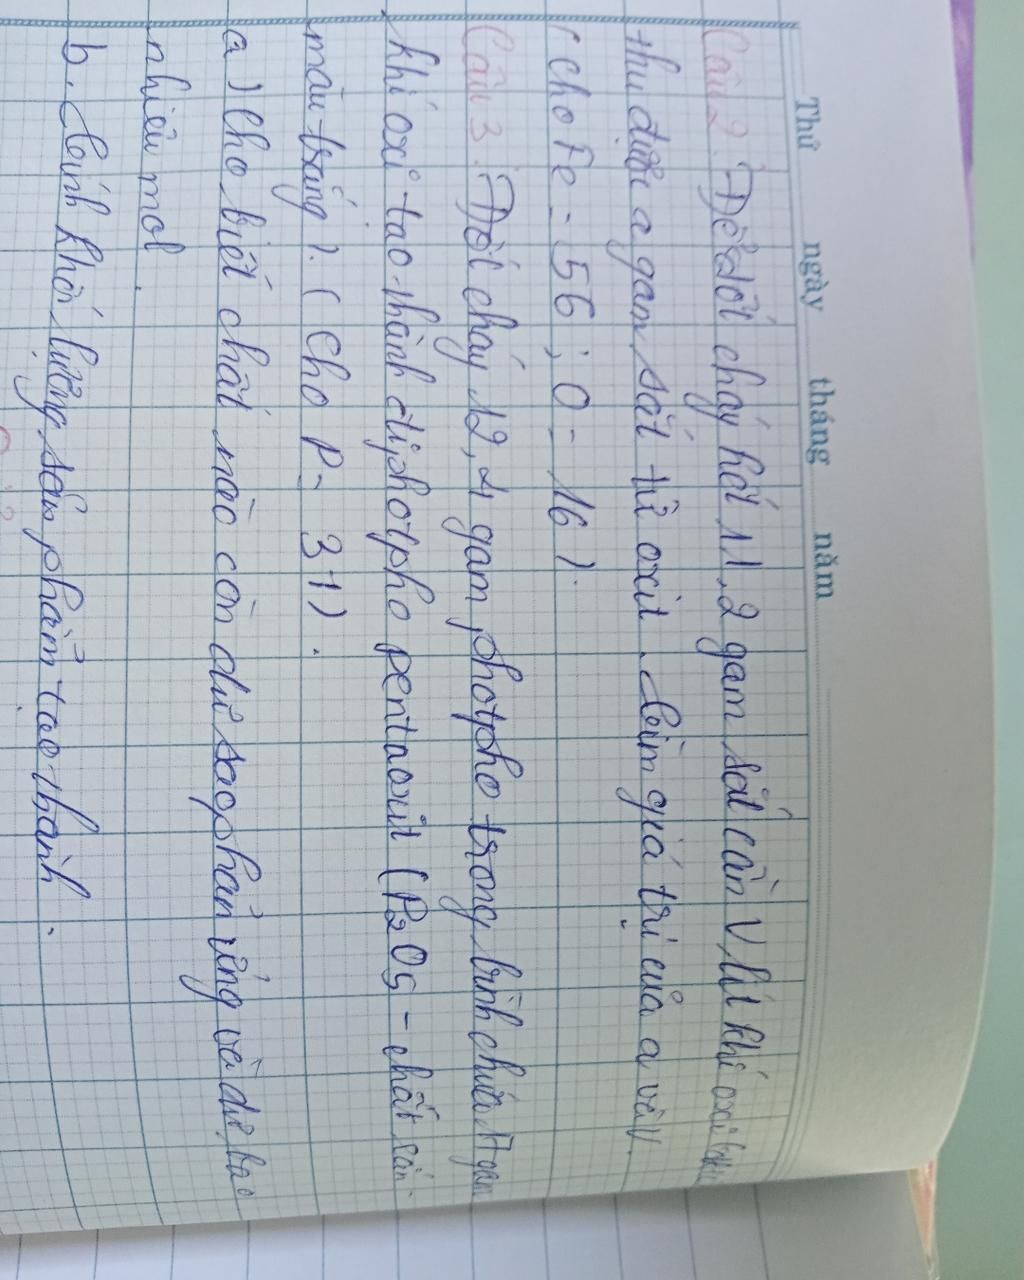 Thứ ngày tháng năm
Câu 2. Để đốt cháy hết 11,2 gam sắt cần V lít khí oxi
thu được a gam sắt từ oxit. Tìm giá trị của a và V.
(cho Fe = 56; O = 16).
Câu 3. Đốt cháy 12,4 gam photpho trong bình chứa 17 gam
khí oxi tao thành điphotpho pentaoxit (P2O5 - chất rắn
màu trắng). (cho P = 31).
a) Cho biết chất nào còn dư sao phản ứng và dư bao
nhiêu mol.
b. Tính khối lượng sản phẩm tao thành.